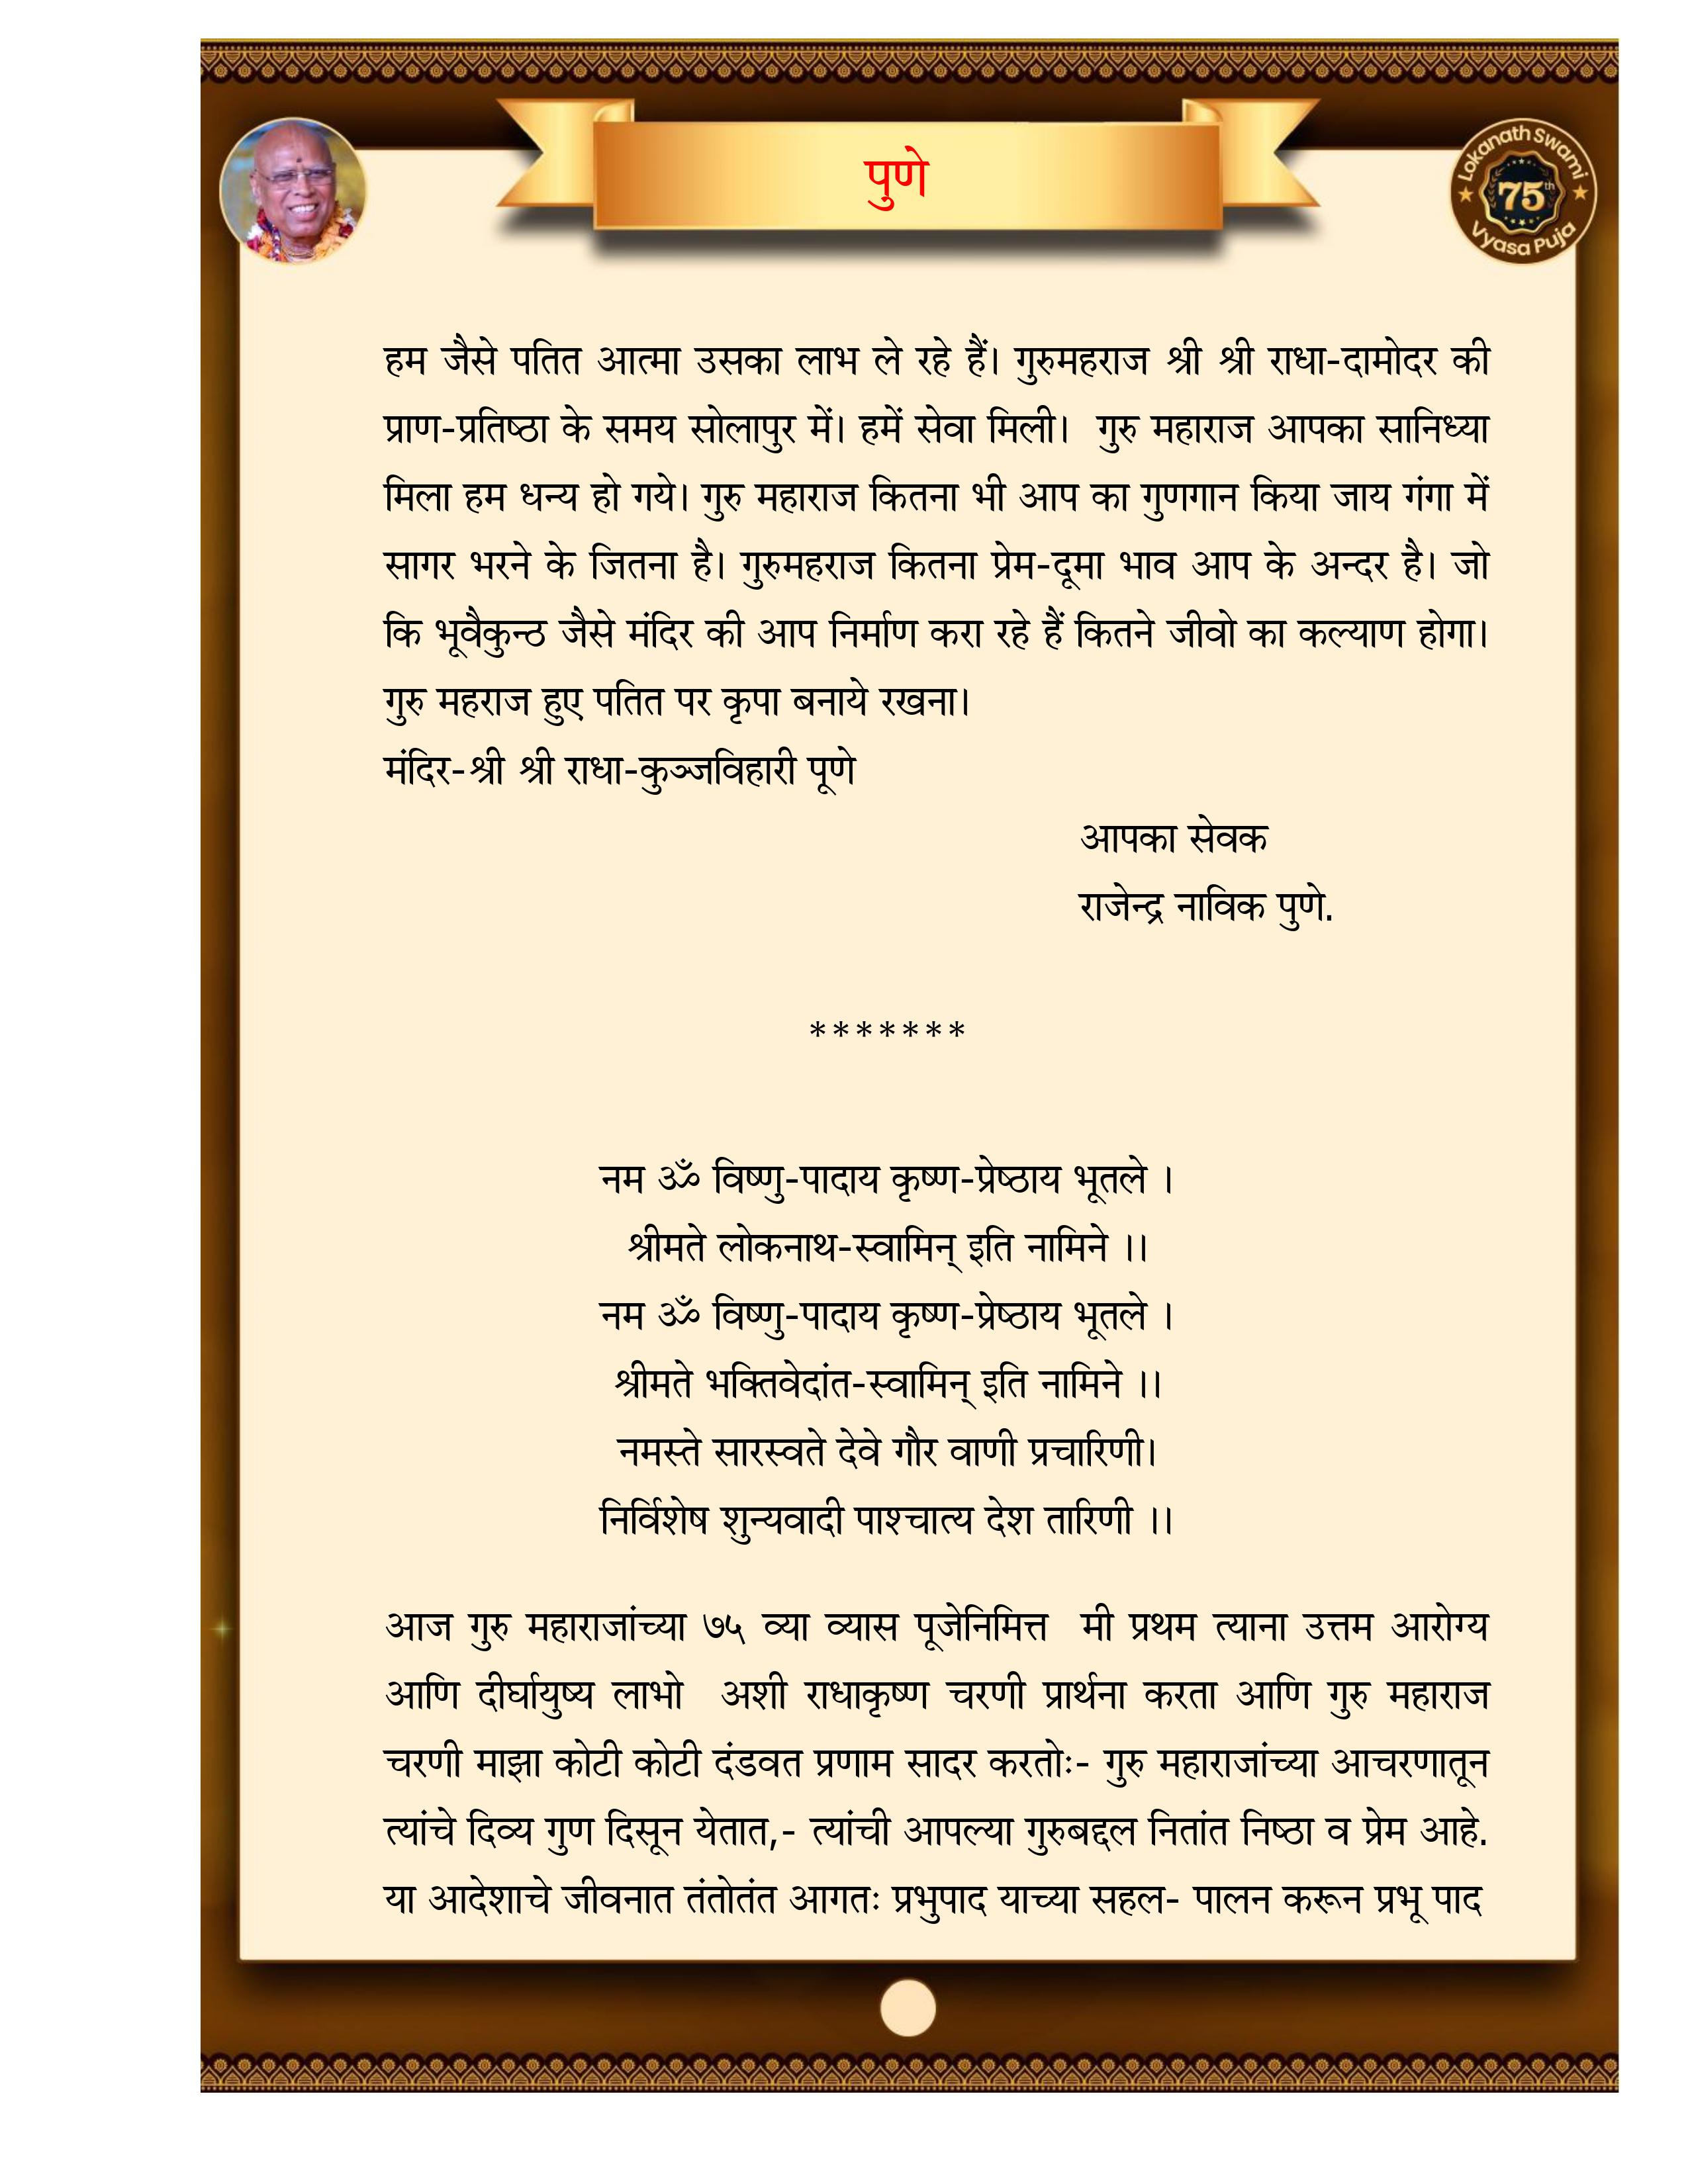 पुणे
Lokanath Swami
75th
Vyasa Puja
हम जैसे पतित आत्मा उसका लाभ ले रहे हैं। गुरुमहराज श्री श्री राधा-दामोदर की
प्राण-प्रतिष्ठा के समय सोलापुर में। हमें सेवा मिली। गुरु महाराज आपका सानिध्या
मिला हम धन्य हो गये। गुरु महाराज कितना भी आप का गुणगान किया जाय गंगा में
सागर भरने के जितना है। गुरुमहराज कितना प्रेम-दूमा भाव आप के अन्दर है। जो
कि भूवैकुन्ठ जैसे मंदिर की आप निर्माण करा रहे हैं कितने जीवो का कल्याण होगा।
गुरु महराज हुए पतित पर कृपा बनाये रखना।
मंदिर-श्री श्री राधा-कुञ्जविहारी पूणे
आपका सेवक
राजेन्द्र नाविक पुणे.
*******
नम ॐ विष्णु-पादाय कृष्ण-प्रेष्ठाय भूतले ।
श्रीमते लोकनाथ-स्वामिन् इति नामिने ।।
नम ॐ विष्णु-पादाय कृष्ण-प्रेष्ठाय भूतले ।
श्रीमते भक्तिवेदांत-स्वामिन् इति नामिने ।।
नमस्ते सारस्वते देवे गौर वाणी प्रचारिणी।
निर्विशेष शुन्यवादी पाश्चात्य देश तारिणी ।।
आज गुरु महाराजांच्या ७५ व्या व्यास पूजेनिमित्त मी प्रथम त्याना उत्तम आरोग्य
आणि दीर्घायुष्य लाभो अशी राधाकृष्ण चरणी प्रार्थना करता आणि गुरु महाराज
चरणी माझा कोटी कोटी दंडवत प्रणाम सादर करतोः- गुरु महाराजांच्या आचरणातून
त्यांचे दिव्य गुण दिसून येतात,- त्यांची आपल्या गुरुबद्दल नितांत निष्ठा व प्रेम आहे.
या आदेशाचे जीवनात तंतोतंत आगतः प्रभुपाद याच्या सहल- पालन करून प्रभू पाद